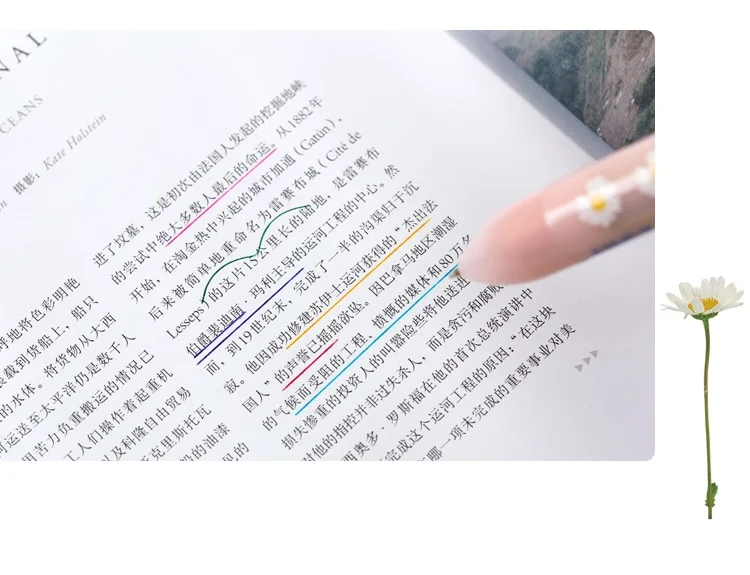 NAL
CEANS
摄影：Kate Holstein
呼地将色彩明艳
载到货船上，船只
水体。将货物从大西
运送至太平洋仍是数千人
苦力负重搬运的情况已
工人们操作着起重机
以及科隆自由贸易
克里斯托瓦
船的油漆
见的
进了坟墓，这是初次由法国人发起的挖掘地峡
的尝试中绝大多数人最后的命运。从1882年
开始，在淘金热中兴起的城市加通（Gatún），
后来被简单地重命名为雷赛布城（Cité de
Lesseps）的这片15公里长的陆地，是雷赛布
伯爵裴迪南·玛利主导的运河工程的中心。然
而，到19世纪末，完成了一半的沟渠归于沉
寂。他因成功修建苏伊士运河获得的“杰出法
国人”的声誉已摇摇欲坠。因巴拿马地区潮湿
的气候而受阻的工程、愤慨的媒体和80万名
损失惨重的投资人的叫嚣险些将他送进
对他的指控并非过失杀人，而是贪污和腐败
西奥多·罗斯福在他的首次总统演讲中
完成这个运河工程的原因：“在这块
哪一项未完成的重要事业对美